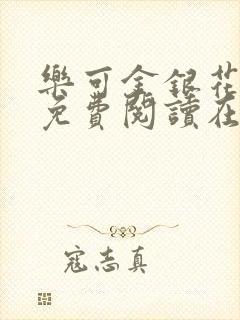 樂可金銀花
免費閱讀在
寇志真